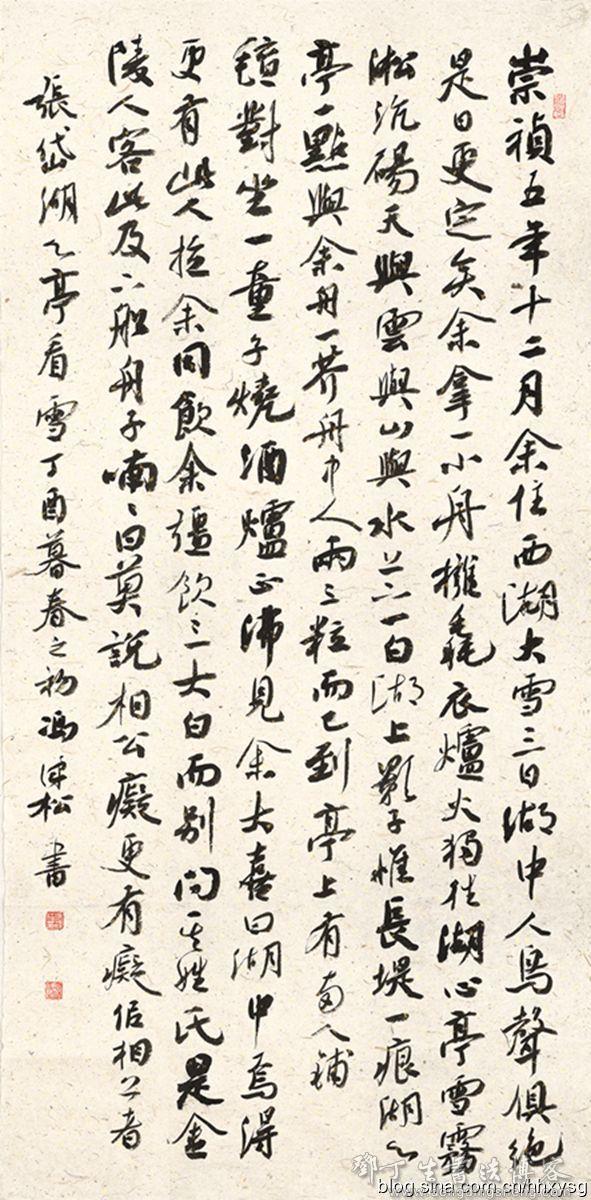 崇禎五年十二月余住西湖大雪三日湖中人鳥聲俱絶
是日更定矣余拿一小舟擁毳衣爐火獨往湖心亭雪霧
淞沆碭天與雲與山與水上下一白湖上影子惟長堤一痕湖心
亭一點與余舟一芥舟中人兩三粒而已到亭上有兩人鋪
氈對坐一童子燒酒爐正沸見余大喜曰湖中焉得
更有此人拉余同飲余彊飲三大白而別問其姓氏是金
陵人客此及下船舟子喃々曰莫說相公癡更有癡似相公者
張岱湖心亭看雪丁酉暮春之初馮松書
鄧丁生書法博客
blog.sina.com.cn/hhxysg